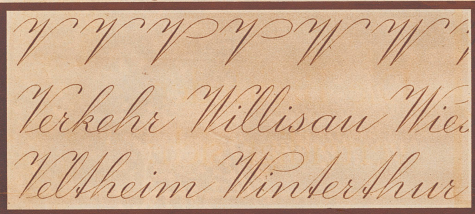 V V P P W W
Verkehr Willisau Wies
Veltheim Winterthur